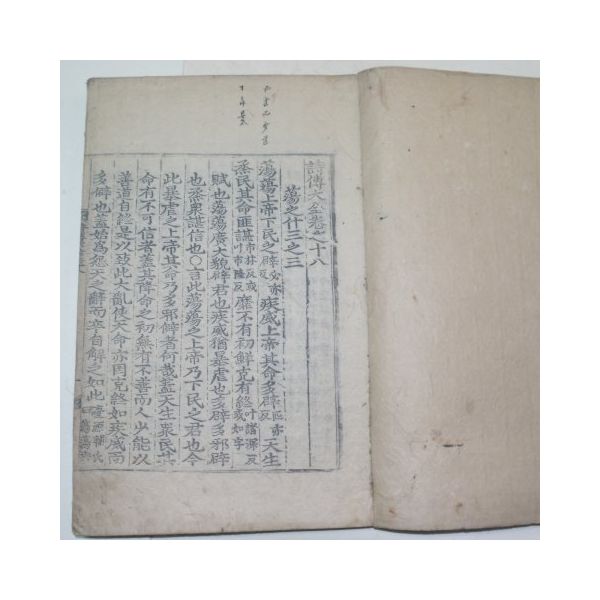 詩傳大全卷之十八
蕩之什三之三
蕩蕩上帝下民之辟必亦反疾威上帝其命多辟匹亦反天生
烝民其命匪諶市林反或叶市隆反靡不有初鮮克有終叶諸深反或如字
賦也蕩蕩廣大貌辟君也疾威猶暴虐也多辟多邪辟
也烝衆諶信也○言此蕩蕩之上帝乃下民之君也今
此暴虐之上帝其命乃多邪辟者何哉蓋天生衆民其
命有不可信者蓋其降命之初無有不善而人少能以
善道自終是以致此大亂使天命亦罔克終如疾威而
多僻也蓋始爲怨天之辭而卒自解之如此